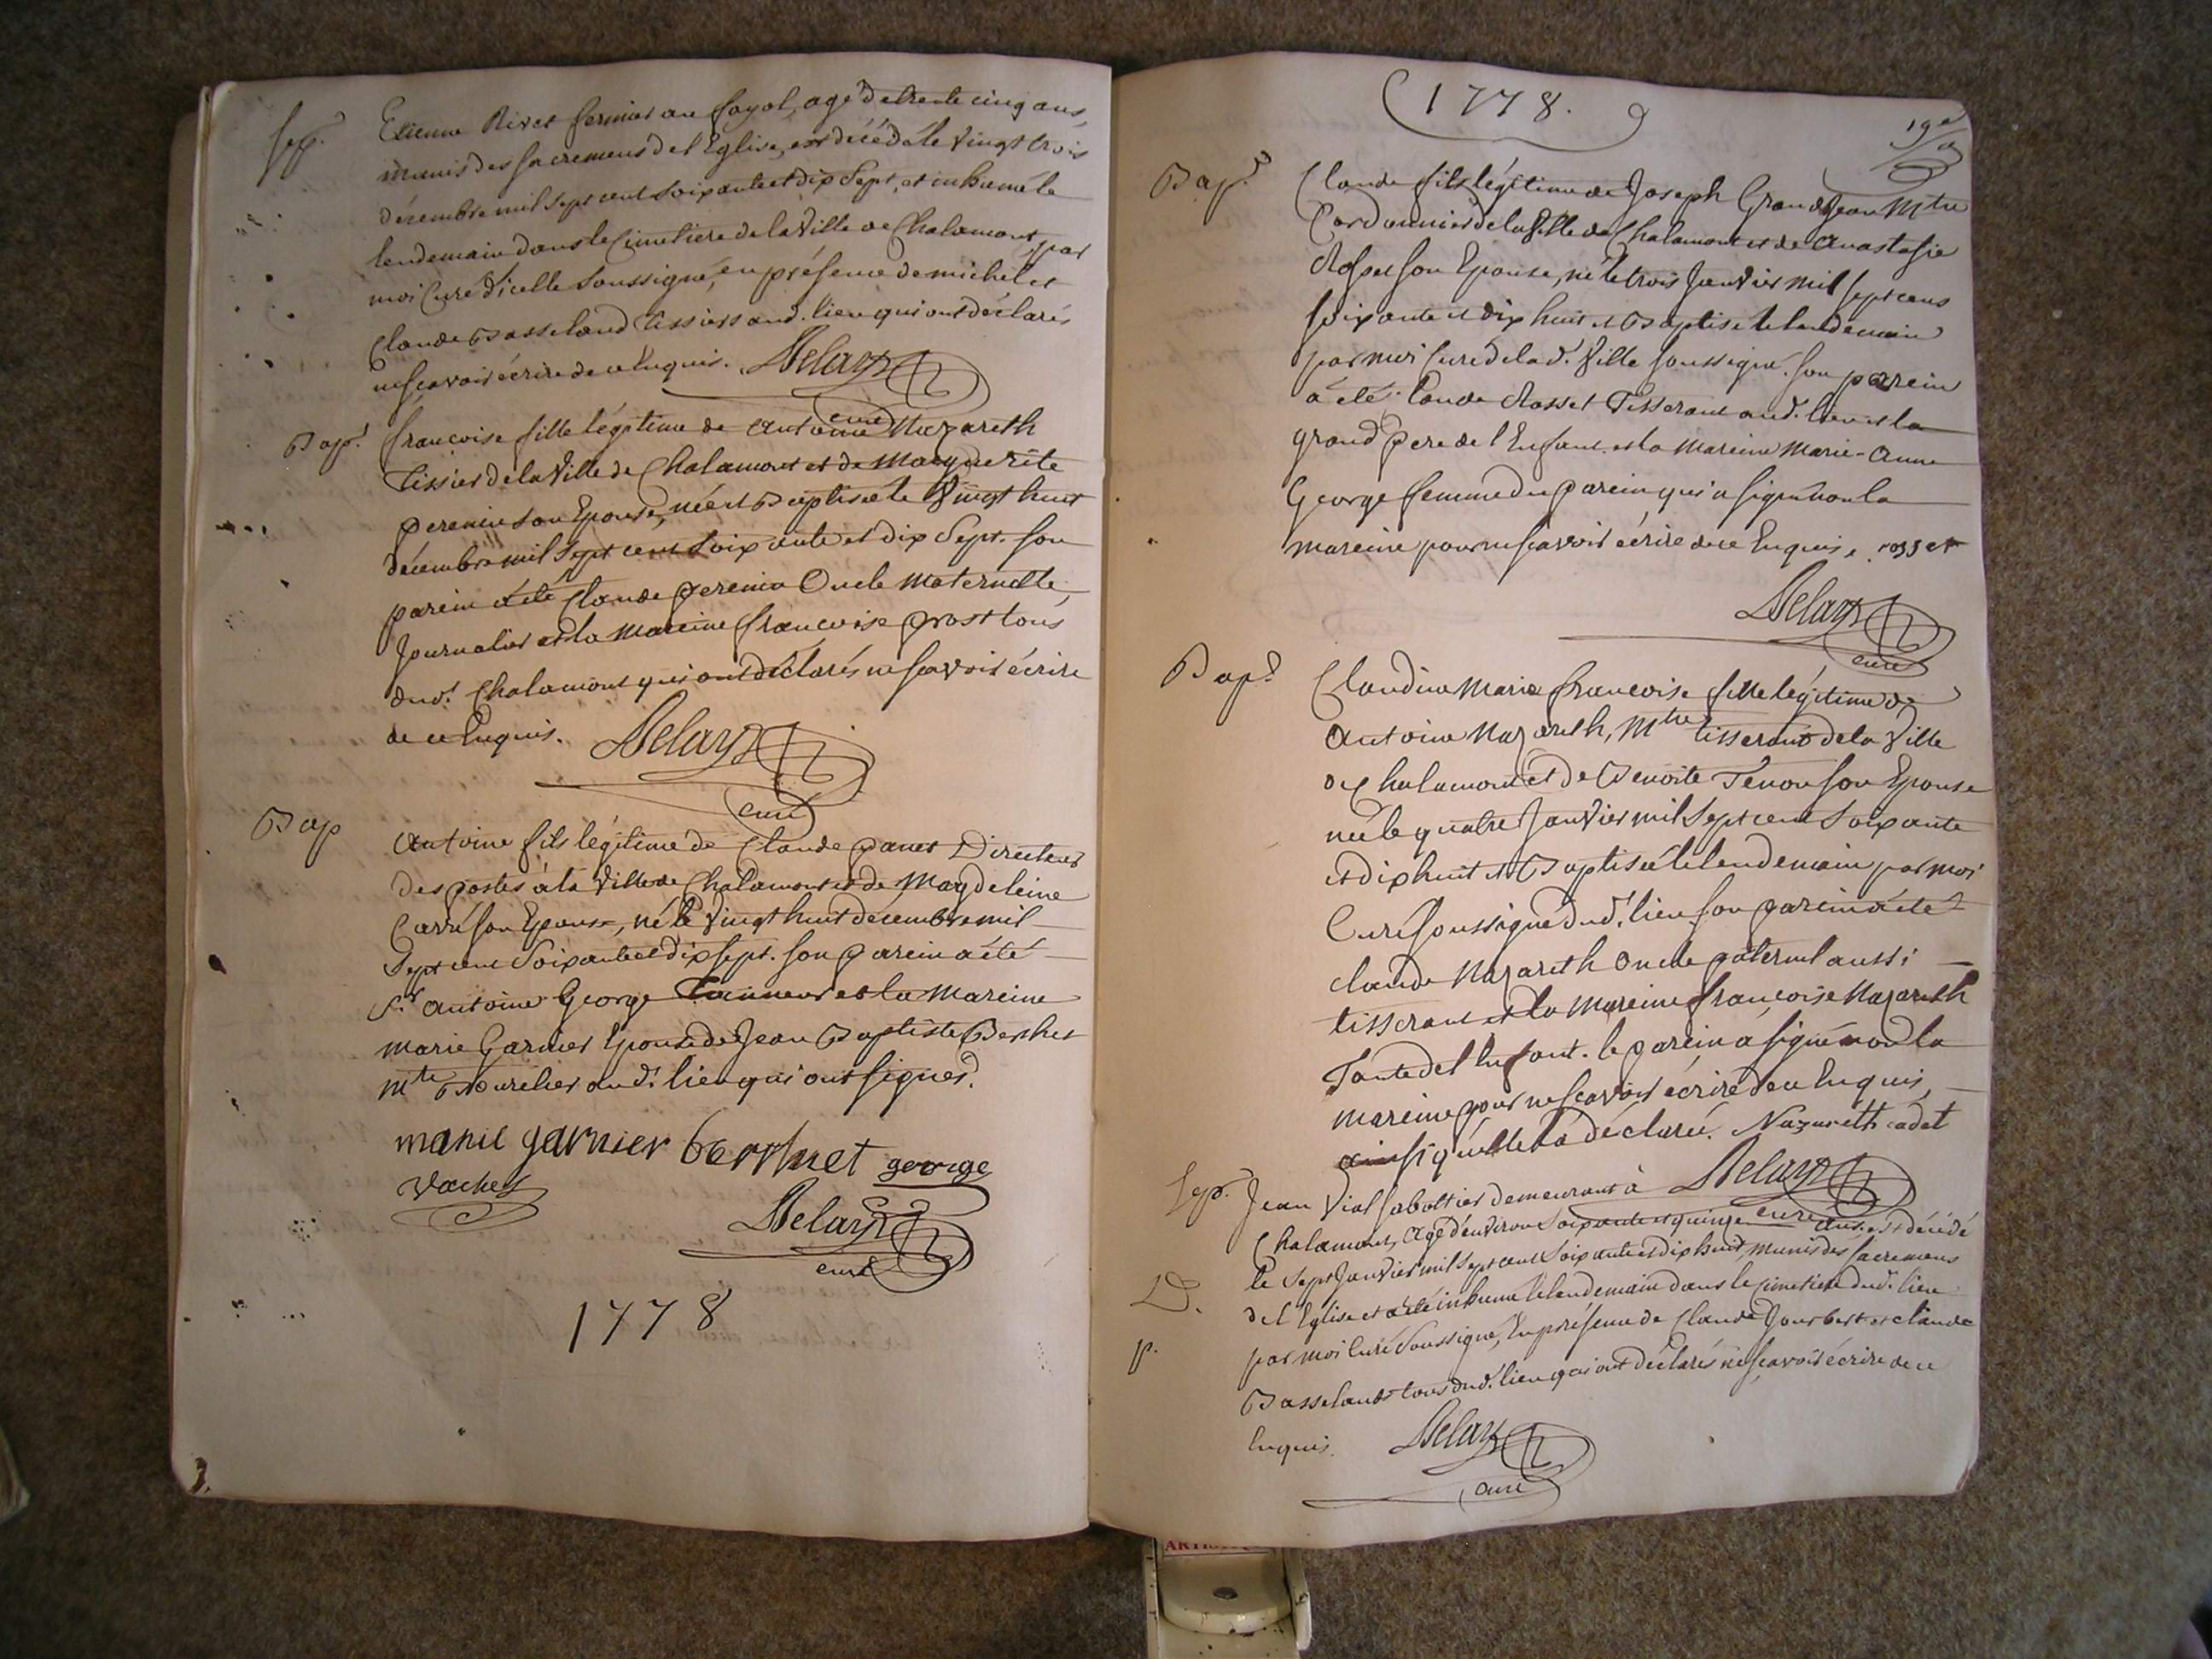 Sep.
Etienne Rivet fermier au fayol, agé de trente cinq ans,
munis des sacremens de l'Eglise, est décédé le vingt trois
décembre mil sept cent soixante et dix sept, et inhumé le
lendemain dans le Cimetiere de la ville de Chalamont, par
moi Curé d'icelle soussigné, en présence de michel et
Claude Basseland Tissiers aud. lieu qui ont déclarés
ne sçavoir écrire de ce Enquis. Delay
curé
Bap.t
françoise fille légitime de antoine Nazareth
Tissier de la Ville de Chalamont et de Marguerite
perenin son Epouse, née et Baptisée le vingt huit
décembre mil sept cent soixante et dix sept. son
parein a été Claude perenin Oncle maternelle,
Journalier et la mareine françoise prost tous
dud.t Chalamont qui ont déclarés ne sçavoir écrire
de ce Enquis. Delay
curé
Bap
Antoine fils légitime de Claude panet Directeur
des postes à la ville de Chalamont et de Magdeleine
Carré son Epouse, né le vingt huit décembre mil
sept cent soixante et dix sept. son parein a été
S.r antoine George Tanneur et la mareine
marie Garnier Epouse de Jean Baptiste Berthet
M.te Bourelier aud.t lieu qui ont signés.
marie garnier berthet george
Vachez
Delay
curé
1778
1778.
19e
Bap.t
Claude fils légitime de Joseph Grandjean Mtre
Cordonnier de la ville de Chalamont et de Anastasie
Rosset son Epouse, né le trois Janvier mil sept cens
soixante et dix huit et Baptisé le lendemain
par moi Curé de lad.t ville soussigné. son parein
a été Claude Rosset Tisserant aud. lieu et la
grand pere de l'Enfant et la mareine Marie-Anne
George femme du parein qui a signé non la
mareine pour ne sçavoir écrire de ce Enquis. rosset
Delay
curé
Bap.t
Claudine Marie françoise fille légitime de
Antoine Nazareth, Mtre tisserant de la Ville
de Chalamont et de Benoite Tenon son Epouse
née le quatre Janvier mil sept cent soixante
et dix huit et Baptisée le lendemain par moi
Curé soussigné dud.t lieu son parein a été
claude Nazareth Oncle paternel aussi
tisserant et la mareine françoise Nazareth
Tante de l'Enfant. le parein a signé non la
mareine pour ne sçavoir écrire de ce Enquis,
ainsi qu'elle l'a déclarée. Nazareth cadet
Delay
curé
Sep.
Jean Vial sabottier demeurant à
Chalamont, agé d'environ soixante et quinze ans, est décédé
le sept Janvier mil sept cent soixante et dix huit, munis des sacremens
D.
de l'Eglise et a été inhumé le lendemain dans le cimetiere dud. lieu
p.
par moi Curé soussigné, En présence de Claude Jourbert et claude
Basseland tous dud. lieu qui ont déclarés ne sçavoir écrire de ce
Enquis. Delay
curé